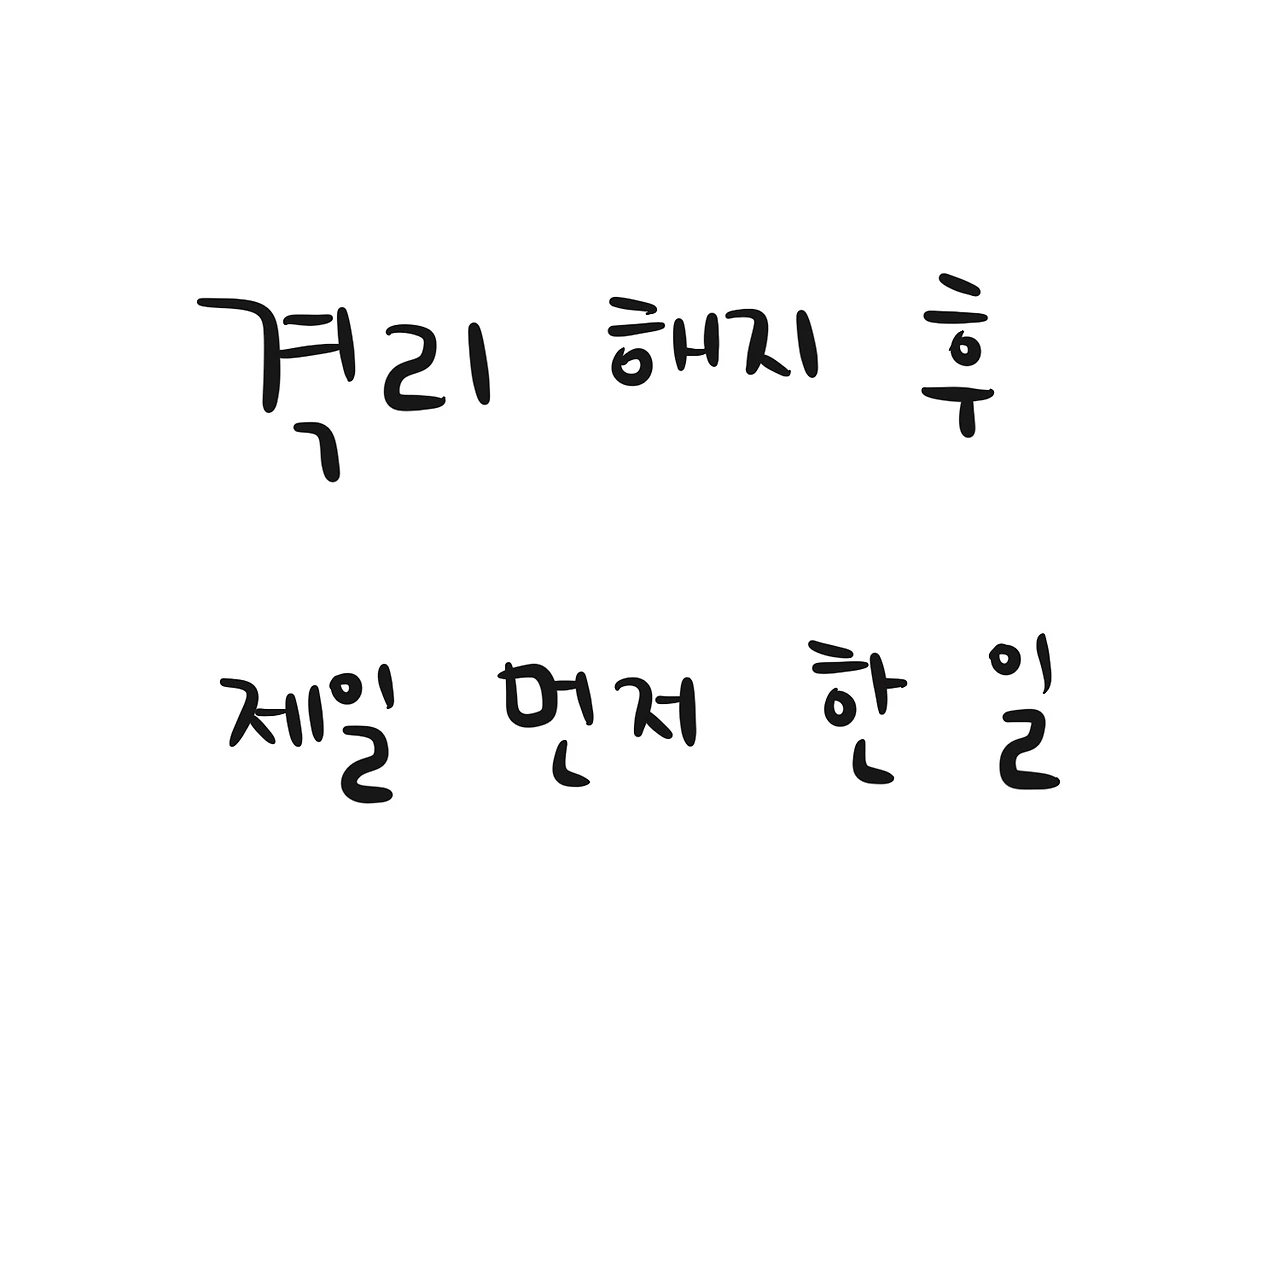 격리 해지 후
제일 먼저 한 일